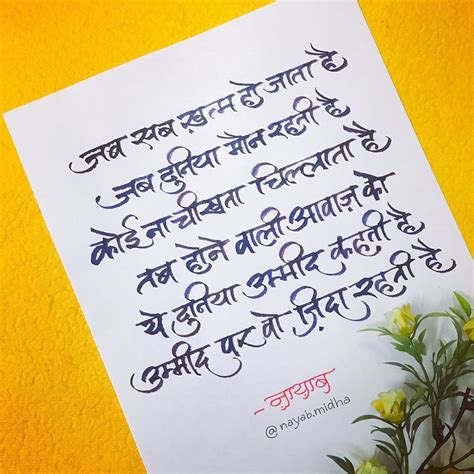 जब सब ख़त्म हो जाता है
जब दुनिया मौन रहती है
कोई ना चीखता चिल्लाता है
तब होने वाली आवाज़ को
ये दुनिया उम्मीद कहती है
उम्मीद पर वो ज़िंदा रहती है
- नायाब
@nayab.midha